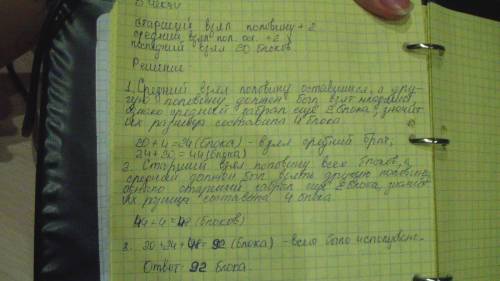 Старший взял половину + 2
средний взял пол. ост. + 2
последний взял 20 блоков.
Решение
1. Средний взял половину оставшихся, а дру-
гую половину должен был взять младший,
однако средний забрал ещё 2 блока, значит
их разница составила 4 блока.
20 + 4 = 24 (блока) - взял средний брат,
24 + 20 = 44 (блока)
2. Старший взял половину всех блоков, а
средний должен был взять другую половину
однако старший забрал ещё 2 блока значит
их разница составила 4 блока.
44 + 4 = 48 (блоков)
3. 20 + 24 + 48 = 92 (блока) - всего было использовано.
Ответ: 92 блока.